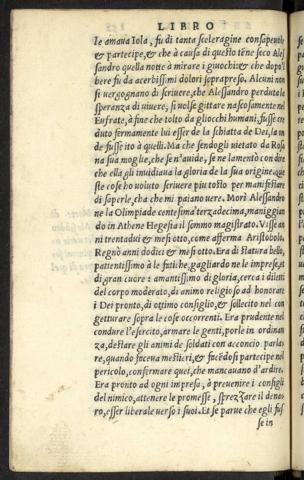 LIBRO
le amaua Iola, fu di tanta sceleragine consapeuole
& partecipe, & che à causa di questo tẽne seco Ales
sandro quella notte à mirare i giuochi: & che dopo'l
bere fu da acerbissimi dolori soprapreso. Alcuni non
si uergognano di scriuere, che Alessandro perdute le
speranza di uiuere, si uolse gittare nascosamente nel
Eufrate, à fine che tolto da gliocchi humani, fusse cre
duto firmamente lui esser de la schiatta de Dei, la on
de fusse ito à quelli. Ma che sendogli uietato da Rosa
na sua moglie, che se n'auide, se ne lamentò con dire
che ella gli inuidiaua la gloria de la sua origine. que
ste cose ho uoluto scriuere piu tosto per manifestare
di saperle, cha che mi paiano uere. Morì Alessandro
ne la Olimpiade centesima terzadecima, maniggian
do in Athene Hegesia il sommo magistrato. Visse an
ni trentadui & mesi otto, come afferma Aristobolo.
Regnò anni dodici & mesi otto. Era di statura belle,
patientissimo à le fatiche, gagliardo ne le imprese, &
di gran cuore: amantissimo di gloria, cerca i diletti
del corpo moderato, di animo religioso ad honorare
i Dei pronto, di ottimo consiglio, & sollecito nel con
getturare sopra le cose occorrenti. Era prudente nel
condure l'esercito, armare le genti, porle in ordinan
za, destare gli animi de soldati con acconcio parla-
re, quando faceua mestieri, & facẽdosi partecipe nel
pericolo, confermare quei, che mancauano d'ardire.
Era pronto ad ogni impresa, à preuenire i consigli
del nimico, attenere le promesse, sprezzare il dena-
ro, esser liberale uerso i suoi. Et se parue che egli fus
se in